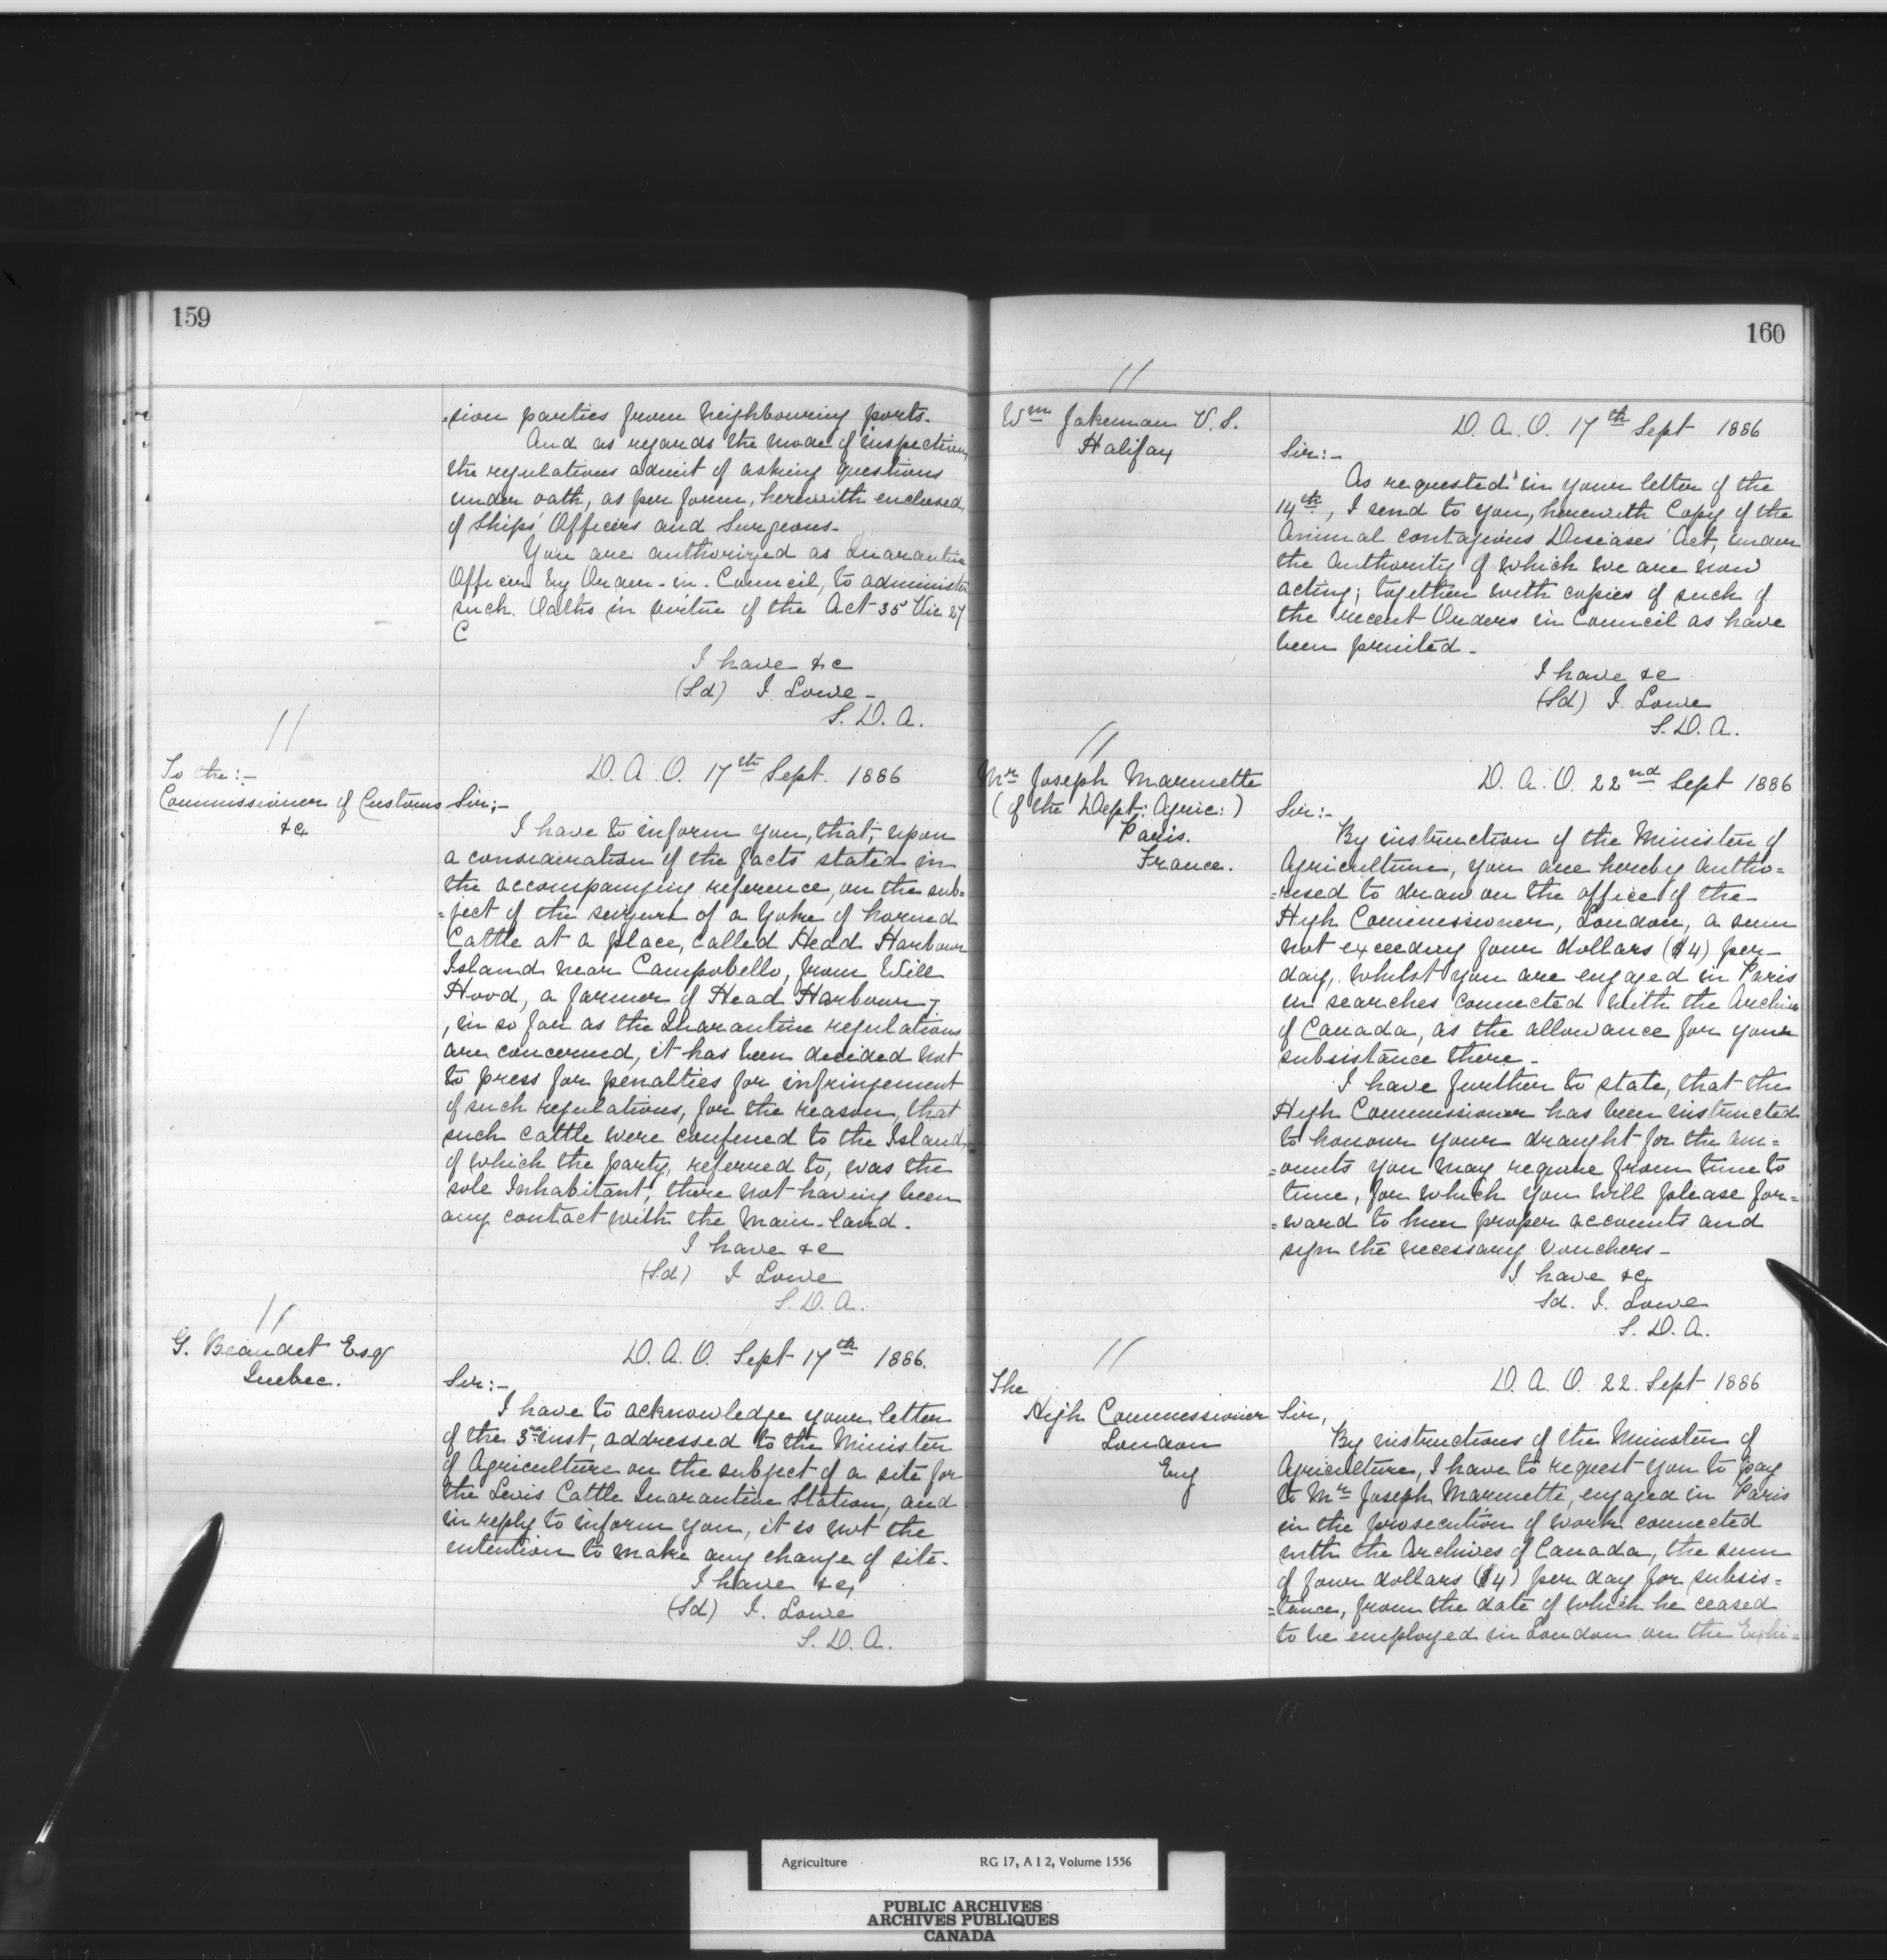 159
=sion parties from neighbouring ports.
And as regards the mode of inspection,
the regulations admit of asking questions
under oath, as per form, herewith enclosed,
of Ships' Officers and Surgeons.
You are authorized as Quarantine
Officer by Order-in-Council, to administer
such Oaths in virtue of the Act 35 Vic 27
C
I have &c
(Sd) J. Lowe-
S. D. A.
//
To the:-
Commissioner of Customs
&c
D. A. O. 17th Sept. 1886
Sir;-
I have to inform you, that, upon
a consideration of the facts stated in
the accompanying reference, on the sub=
=ject of the seizure of a Yoke of horned
Cattle at a place, called Head Harbour
Island near Campobello, from Will
Hood, a farmer of Head Harbour;
, in so far as the Quarantine regulations
are concerned, it has been decided not
to press for penalties for infringement
of such regulations, for the reason, that
such cattle were confined to the Island,
of which the party, referred to, was the
sole Inhabitant, there not having been
any contact with the main-land.
I have &c
(Sd) J Lowe
S. D. A.
//
G. Beaudet Esqr
Quebec.
D. A. O. Sept 17th 1886.
Sir:-
I have to acknowledge your letter
of the 3rd inst, addressed to the Minister
of Agriculture on the subject of a site for
the Levis Cattle Quarantine Station, and
in reply to inform you, it is not the
intention to make any change of site.
I have &c,
(Sd) J. Lowe
S. D. A.
160
//
Wm Jakeman V.S.
Halifax
D. A. O. 17th Sept 1886
Sir:-
As requested in your letter of the
14th, I send to you, herewith Copy of the
Animal contagious Diseases Act, under
the authority of which we are now
acting; together with copies of such of
the recent Orders in Council as have
been printed-
I have &c
(Sd) J. Lowe
S. D. A.
//
Mr Joseph Marmette
(of the Dept: Agric:)
Paris.
France.
D. A. O. 22nd Sept 1886
Sir:-
By instruction of the Minister of
Agriculture, you are hereby autho=
=rised to draw on the office of the
High Commissioner, London, a sum
not exceeding four dollars ($4) per
day, whilst you are engaged in Paris
in searches connected with the Archives
of Canada, as the allowance for your
subsistance there-
I have further to state, that the
High Commissioner has been instructed
to honour your draught for the am=
=ounts you may require from time to
time, for which you will please for=
=ward to him proper accounts and
sign the necessary Vouchers-
I have &c
Sd. J. Lowe
S. D. A.
//
The
High Commissioner
London
Eng
D. A. O. 22. Sept 1886
Sir,
By instructions of the Minister of
Agriculture, I have to request you to pay
to Mr Joseph Marmette, engaged in Paris
in the prosecution of work connected
with the Archives of Canada, the sum
of four dollars ($4) per day for subsis=
=tance, from the date of which he ceased
to be employed in London on the Exhi=
Agriculture RG 17, A I 2, Volume 1556
PUBLIC ARCHIVES
ARCHIVES PUBLIQUES
CANADA